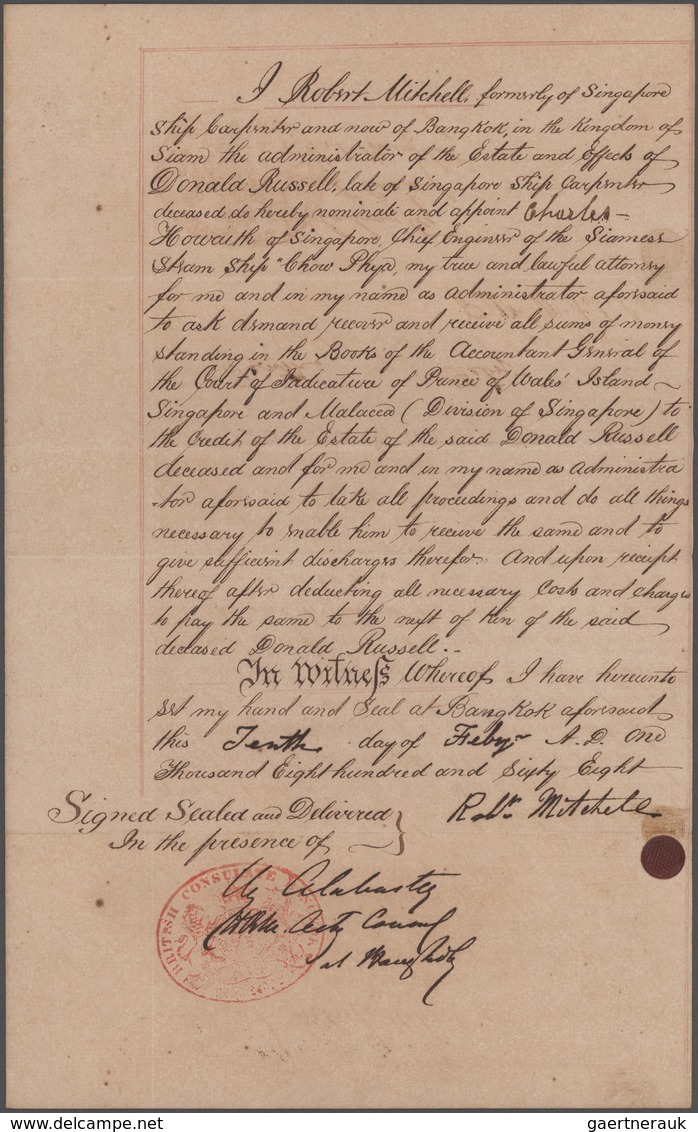 I Robert Mitchell, formerly of Singapore
Ship Carpenter and now of Bangkok, in the Kingdom of
Siam the administrator of the Estate and Effects of
Donald Russell, late of Singapore Ship Carpenter
deceased do hereby nominate and appoint Charles
Howarth of Singapore, Chief Engineer of the Siamese
Steam Ship "Chow Phya, my true and lawful attorney
for me and in my name as administrator aforesaid
to ask demand recover and receive all sums of money
standing in the Books of the Accountant General of
the Court of Judicature of Prince of Wales' Island
Singapore and Malacca (Division of Singapore) to
the Credit of the Estate of the said Donald Russell
deceased and for me and in my name as administra
-tor aforesaid to take all proceedings and do all things
necessary to enable him to receive the same and to
give sufficient discharges therefor. And upon receipt
thereof after deducting all necessary Costs and charges
to pay the same to the next of Kin of the said
deceased Donald Russell.-
In Witness Whereof I have hereunto
set my hand and Seal at Bangkok aforesaid
this Tenth day of Feby A.D. One
Thousand Eight hundred and Sixty Eight
Signed Sealed and Delivered
In the presence of
Robt Mitchell
BRITISH CONSULATE
Alabaster
HBM Actg Consul
at Bangkok
delcampe.net
gaertnerauk